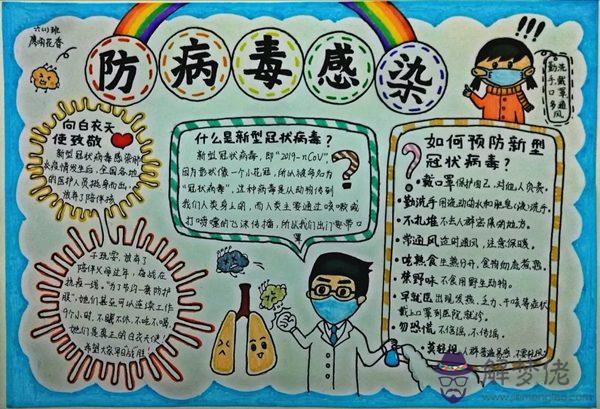 防病毒感染
向白衣天
使致敬
新型冠状病毒感染肺
炎疫情发生后，全国各地
的医护人员挺身而出，
放弃了陪伴孩
放弃了
陪伴父母过年，奋战在
抗疫一线。"为了节约一套防护
服"，她们甚至可以连续工作
9个小时，不睡不休、不吃不喝，
她们是真正的白衣天使！
希望大家早日战胜！
什么是新型冠状病毒？
新型冠状病毒，即"2019-nCoV"，
因为形状像一个小花冠，所以被命名为
"冠状病毒"，这种病毒是从动物传到
我们人类身上的，而人类主要通过咳嗽或
打喷嚏的飞沫传播，所以我们出门要带口
罩
洗手
勤戴口罩
多通风
如何预防新型
冠状病毒？
戴口罩保护自己，对他人负责。
勤洗手用流动的水和肥皂（液）洗手。
不扎堆不去人群密集的地方。
常通风定时通风，注意保暖。
吃熟食生熟分开，食物彻底煮熟。
禁野味不食用野生动物。
早就医出现发热、乏力、干咳等症状
戴上口罩到医院就诊。
勿恐慌不信谣、不传谣。
莫轻视人群普遍易感，不要轻视
解梦佬
www.jiemenglao.com